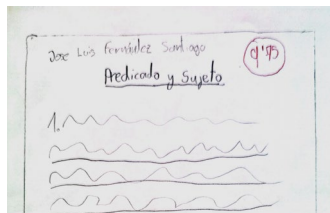 Jose Luis Fernández Santiago
9'75
Predicado y Sujeto
1.